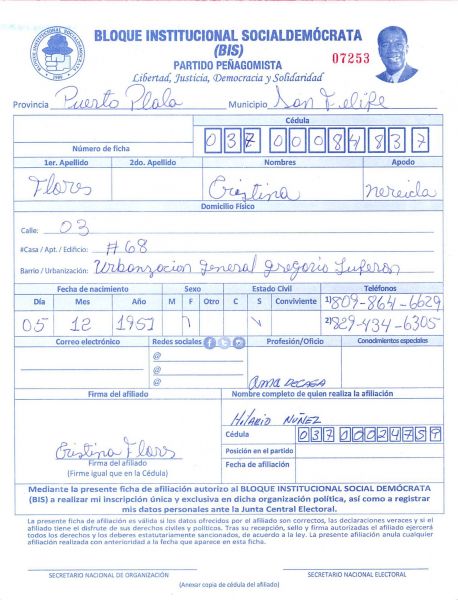 BLOQUE INSTITUCIONAL SOCIALDEMÓCRATA
(BIS)
07253
PARTIDO PEÑAGOMISTA
Libertad, Justicia, Democracia y Solidaridad
Provincia Puerto Plata Municipio San Felipe
Cédula
Número de ficha 037 00084837
1er. Apellido 2do. Apellido Nombres Apodo
Flores Cristina Nereida
Domicilio Físico
Calle: 03
#Casa / Apt. / Edificio: #68
Barrio / Urbanización: Urbanzacion General Gregorio Luperon
Fecha de nacimiento Sexo Estado Civil Teléfonos
Día Mes Año M F Otro C S Conviviente 1) 809-864-6629
05 12 1951 2) 829-434-6305
Correo electrónico Redes sociales Profesión/Oficio Conocimientos especiales
@
@
@ ama DE CASA
Firma del afiliado Nombre completo de quien realiza la afiliación
HILARIO NUÑEZ
Cédula 03700024759
Cristina Flores
Posición en el partido
Firma del afiliado
(Firma igual que en la Cédula)
Fecha de afiliación
Mediante la presente ficha de afiliación autorizo al BLOQUE INSTITUCIONAL SOCIAL DEMÓCRATA
(BIS) a realizar mi inscripción única y exclusiva en dicha organización política, así como a registrar
mis datos personales ante la Junta Central Electoral.
La presente ficha de afiliación es válida si los datos ofrecidos por el afiliado son correctos, las declaraciones veraces y si el
afiliado tiene el disfrute de sus derechos civiles y políticos. Tras su recepción, sello y firma autorizadas el afiliado ejercerá
todos los derechos y los deberes estatutariamente sancionados, de acuerdo a la ley. La presente afiliación anula cualquier
afiliación realizada con anterioridad a la fecha que aparece en esta ficha.
SECRETARIO NACIONAL DE ORGANIZACIÓN SECRETARIO NACIONAL ELECTORAL
(Anexar copia de cédula del afiliado)